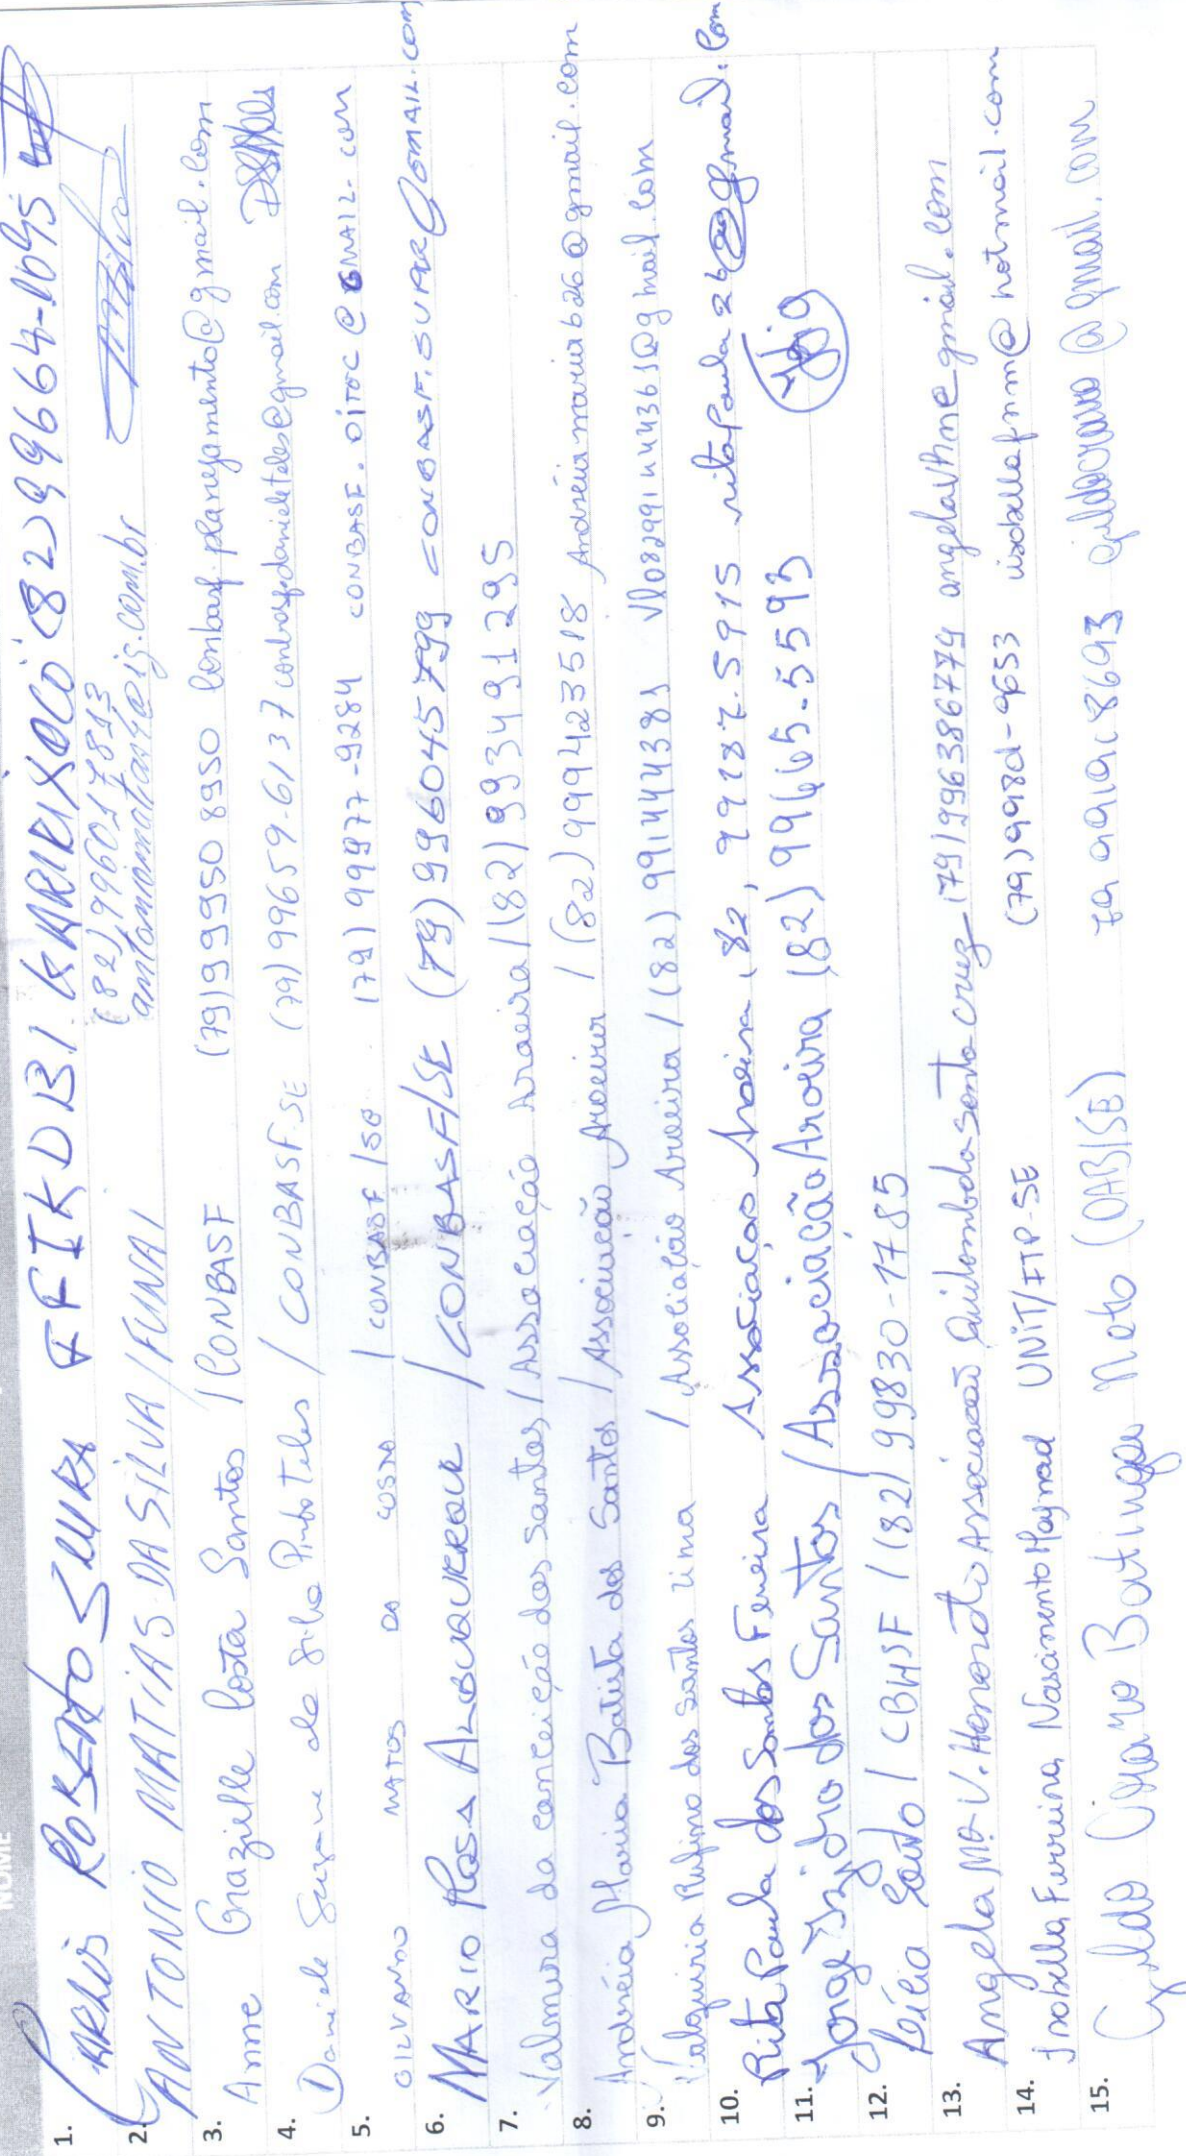 NOME
1. CARLOS ROBERTO SUIRA FFIKDBI. KARIRIXOCÓ (82)99664-1095
2. ANTONIO MATIAS DA SILVA / FUNAI (82) 996017813
antoniomatias4@ig.com.br
3. Anne Grazielle Costa Santos / CONBASF (79) 99950 8950 conbasf.planejamento@gmail.com
4. Daniele Suzane da Silva Pinto Teles / CONBASF-SE (79) 99659-6137 conbasf.danieleteles@gmail.com
5. GILVANO MATOS DA COSTA / CONBASF / SE (79) 99977-9284 CONBASF.OITOC@GMAIL.COM
6. MARIO ROSA ALBUQUERQUE / CONBASF/SE (79) 996045799 CONBASF.SUPER@GMAIL.COM
7. Valmira da conceição dos Santos / Associação Aroeira / (82) 993491295
8. Andréia Maria Batista dos Santos / Associação Aroeira / (82) 999423518 Andréiamariab26@gmail.com
9. Valquiria Rufino dos Santos Lima / Associação Aroeira / (82) 991444381
10. Rita Paula dos Santos Ferreira Associação Aroeira (82, 99187.5915 ritapaula26@gmail.com
11. Jorge Izidro dos Santos / Associação Aroeira (82) 99665.5593
12. Délia / CBHSF / (82) 99830-1785
13. Angela Mª V. Honorato Associação Quilombola Santa Cruz (79) 996386779
14. Isabella Ferreira Nascimento Maynard UNIT/ITP-SE (79) 9980-9653 isabellafnm@hotmail.com
15. Gildo Cirano Batinga Neto (OAB/SE) 79 99191 8693 @gmail.com